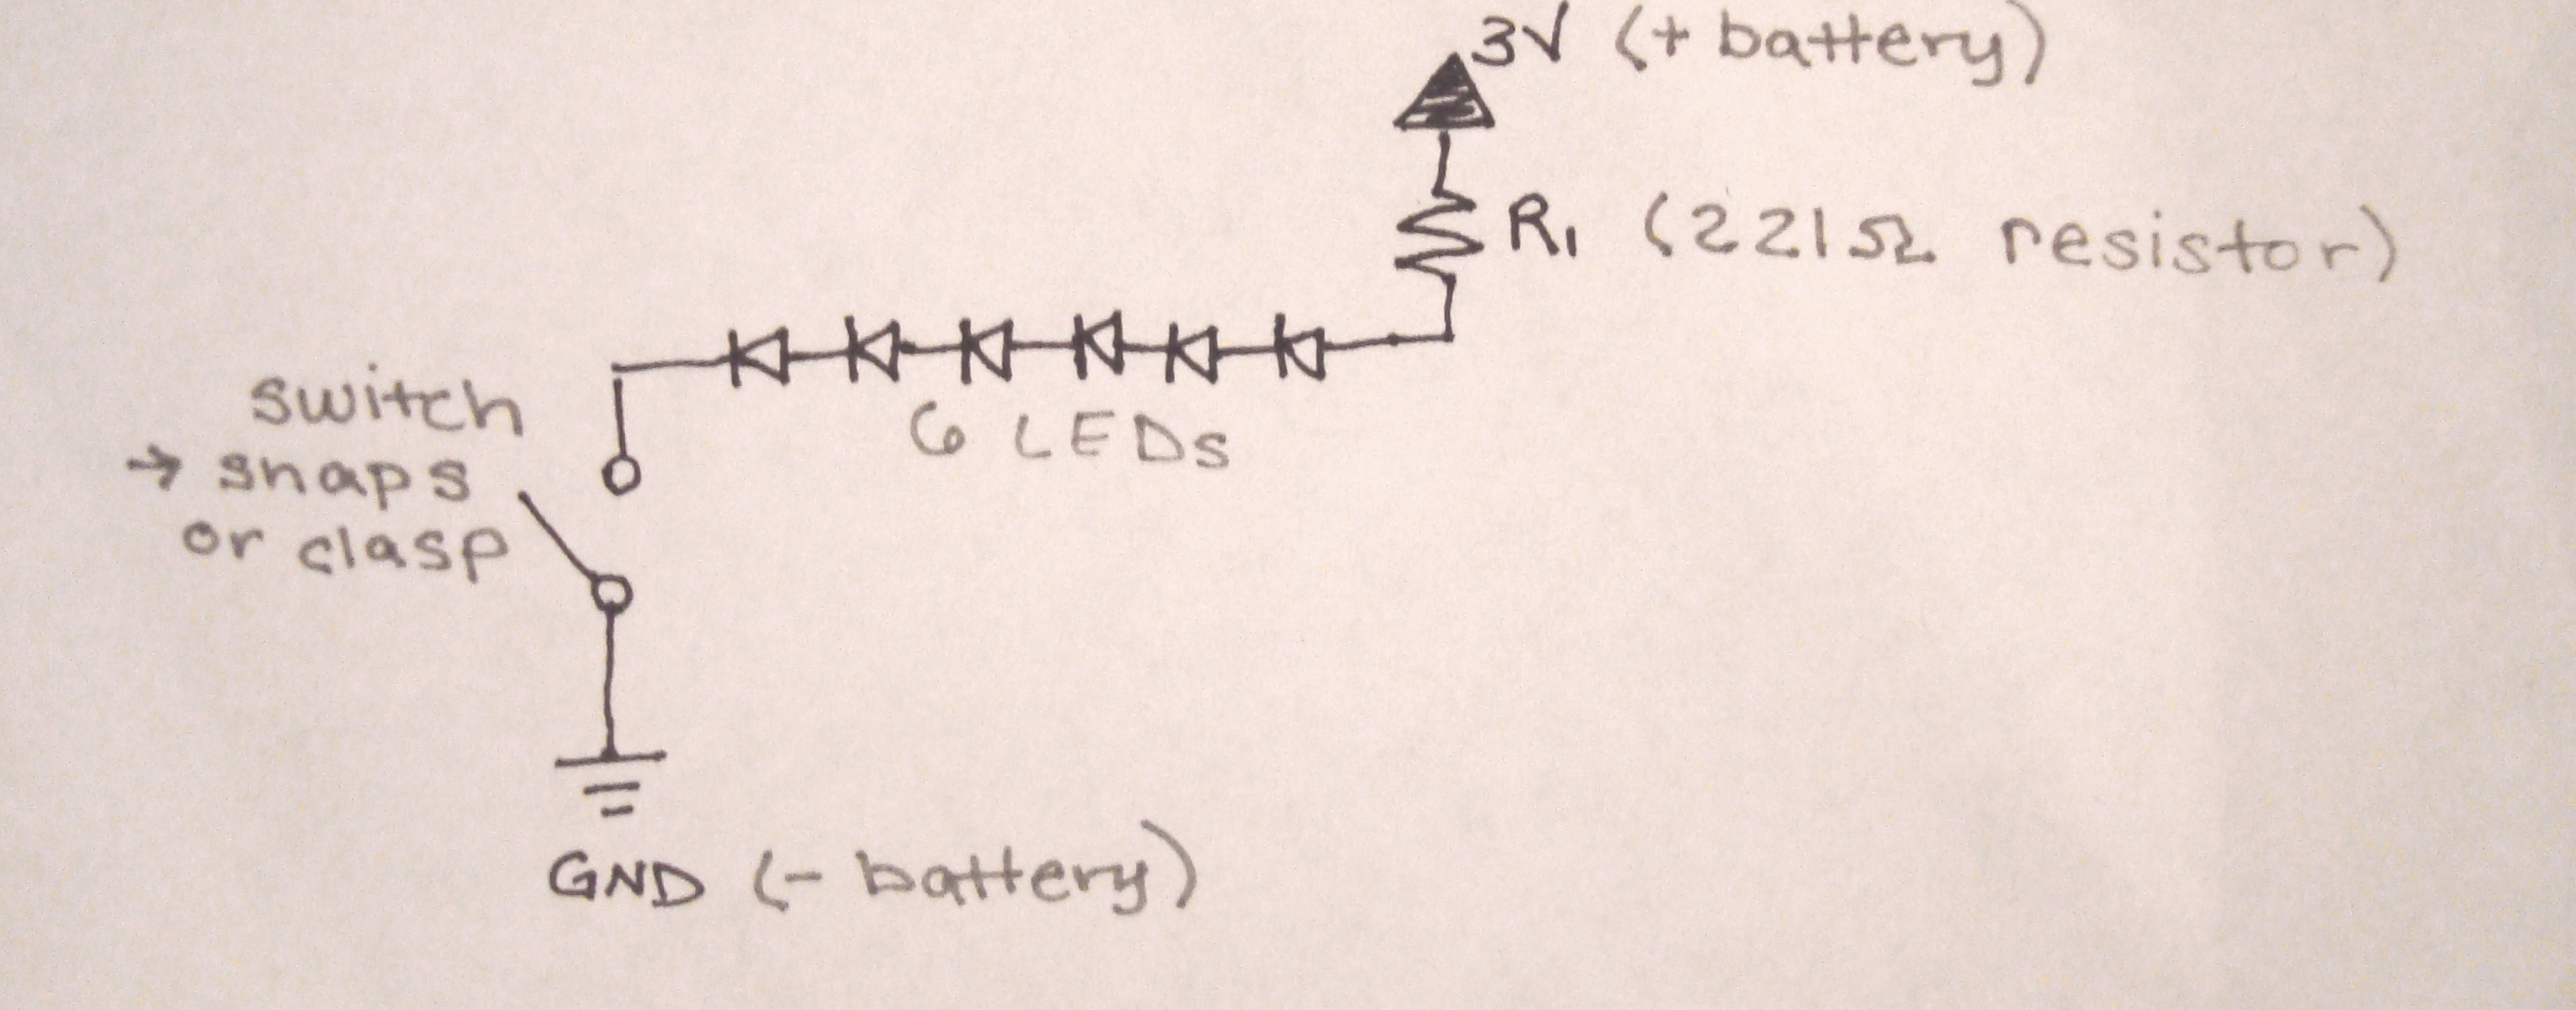 3V (+ battery)
R1 (221Ω resistor)
6 LEDs
switch
→ snaps
or clasp
GND (- battery)